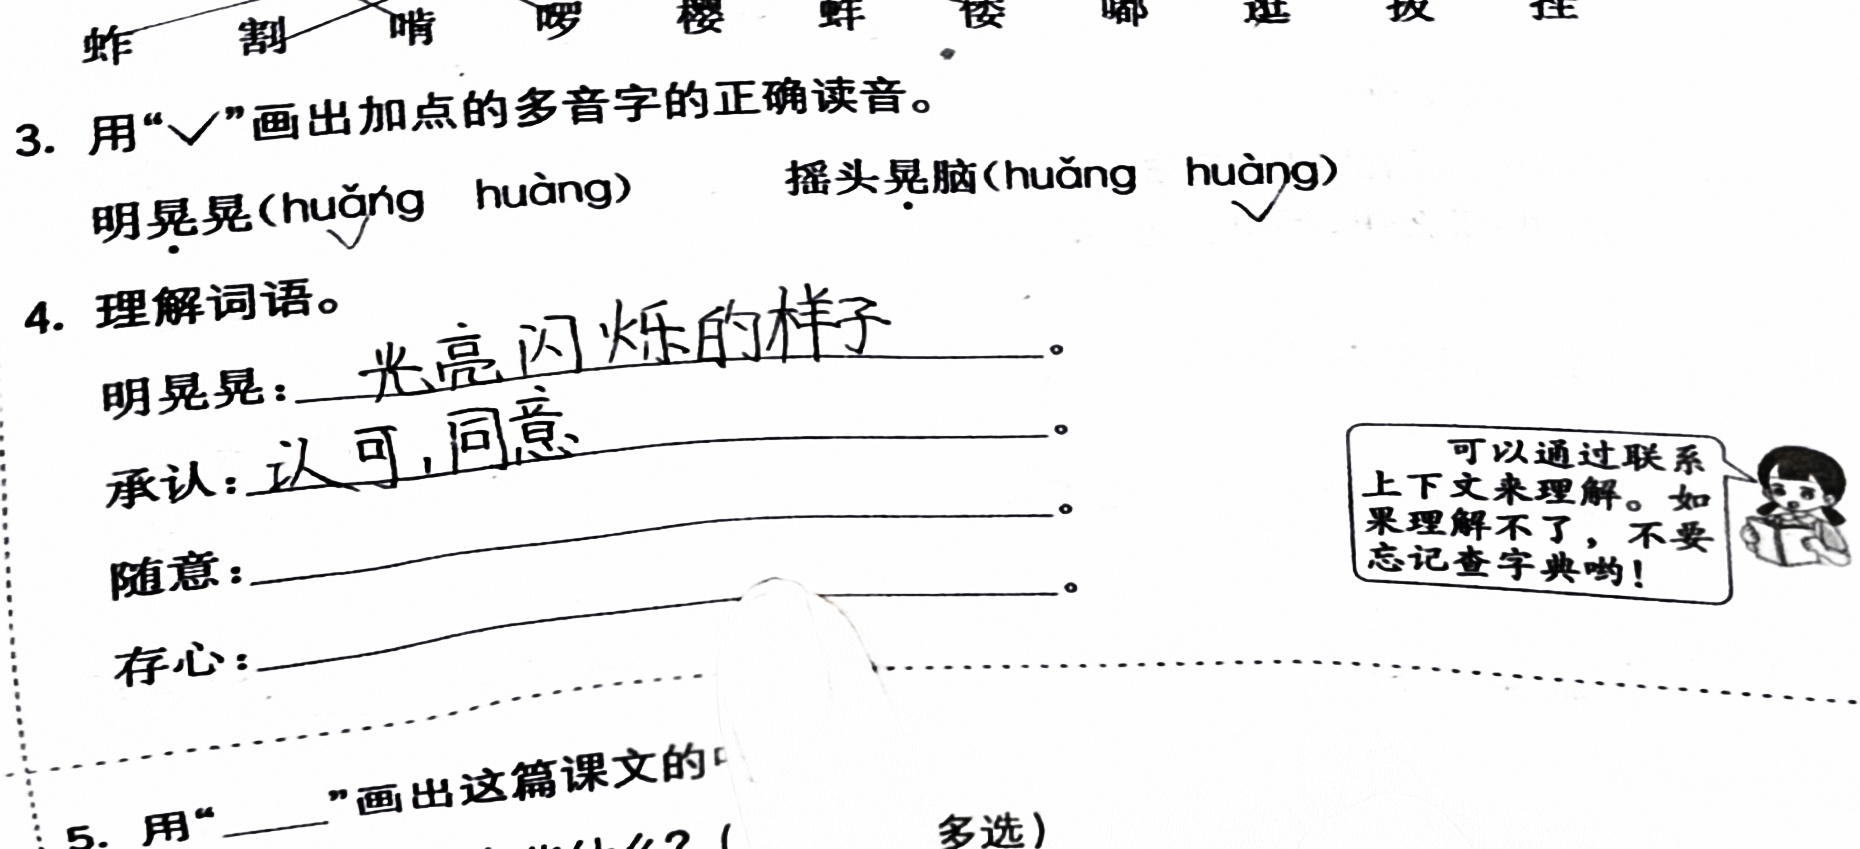 蚱 割 啃 啰 樱 蚌 偻 嘟 逛 拔 拄
3. 用“✓”画出加点的多音字的正确读音。
明晃晃(huǎng huàng) 摇头晃脑(huǎng huàng)
4. 理解词语。
明晃晃：光亮闪烁的样子。
承认：认可，同意。
随意：。
存心：。
可以通过联系
上下文来理解。如
果理解不了，不要
忘记查字典哟！
5. 用“____”画出这篇课文的
多选）